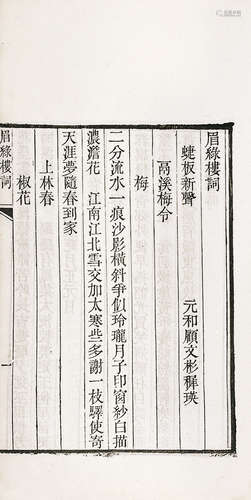 眉綠樓詞
蜨板新聲　元和顧文彬穉瑛
鬲溪梅令
梅
二分流水一痕沙影橫斜爭似玲瓏月子印窗紗白描
濃澹花　江南江北雪交加太寒些多謝一枝驛使寄
天涯夢隨春到家
上林春
椒花
眉綠樓詞
一